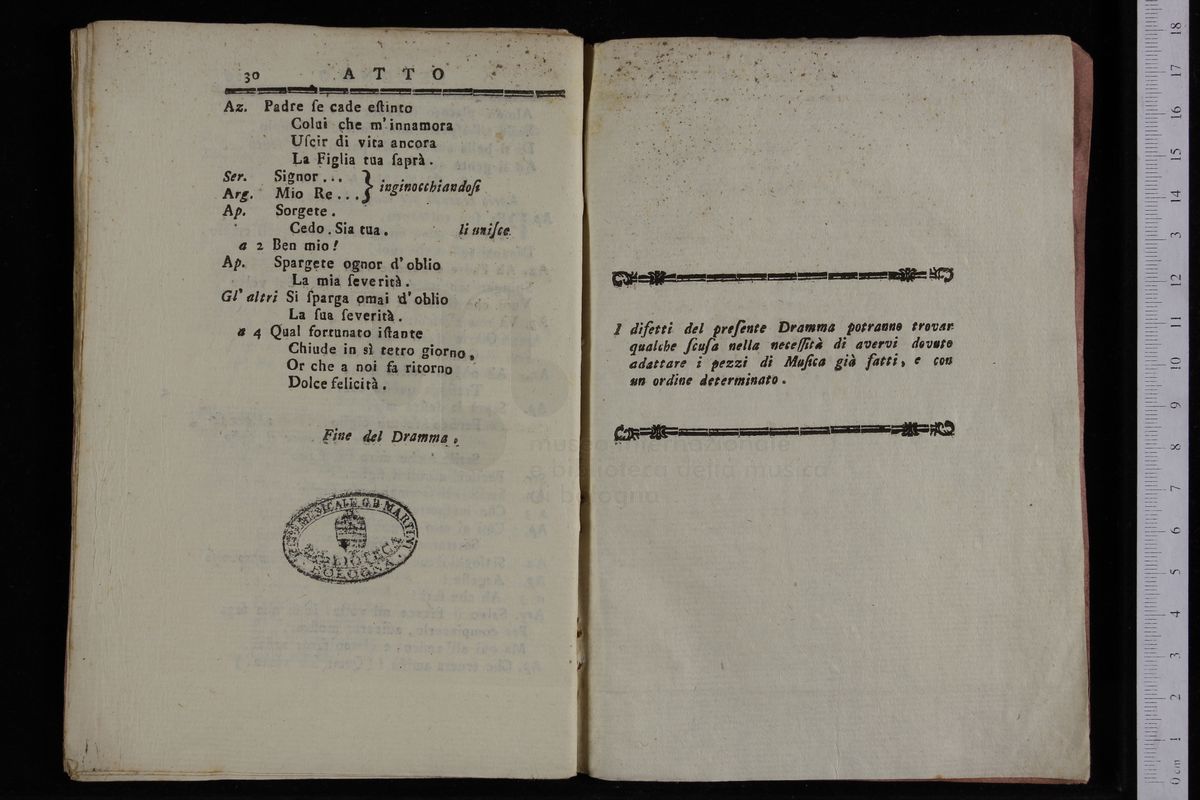 30 ATTO
Az. Padre ſe cade eſtinto
Colui che m'innamora
Uſcir di vita ancora
La Figlia tua ſaprà.
Ser. Signor...
Arg. Mio Re... } inginocchiandoſi
Ap. Sorgete.
Cedo. Sia tua. li uniſce.
a 2 Ben mio!
Ap. Spargete ognor d'oblio
La mia ſeverità.
Gl'altri Si ſparga omai d'oblio
La ſua ſeverità.
a 4 Qual fortunato iſtante
Chiude in sì tetro giorno,
Or che a noi fa ritorno
Dolce felicità.
Fine del Dramma.
LICEO MUSICALE G.B. MARTINI
BIBLIOTECA
BOLOGNA
I difetti del preſente Dramma potranno trovar
qualche ſcuſa nella neceſſità di avervi dovuto
adattare i pezzi di Muſica già fatti, e con
un ordine determinato.
museo internazionale
e biblioteca della musica
di bologna
0 cm 1 2 3 4 5 6 7 8 9 10 11 12 13 14 15 16 17 18